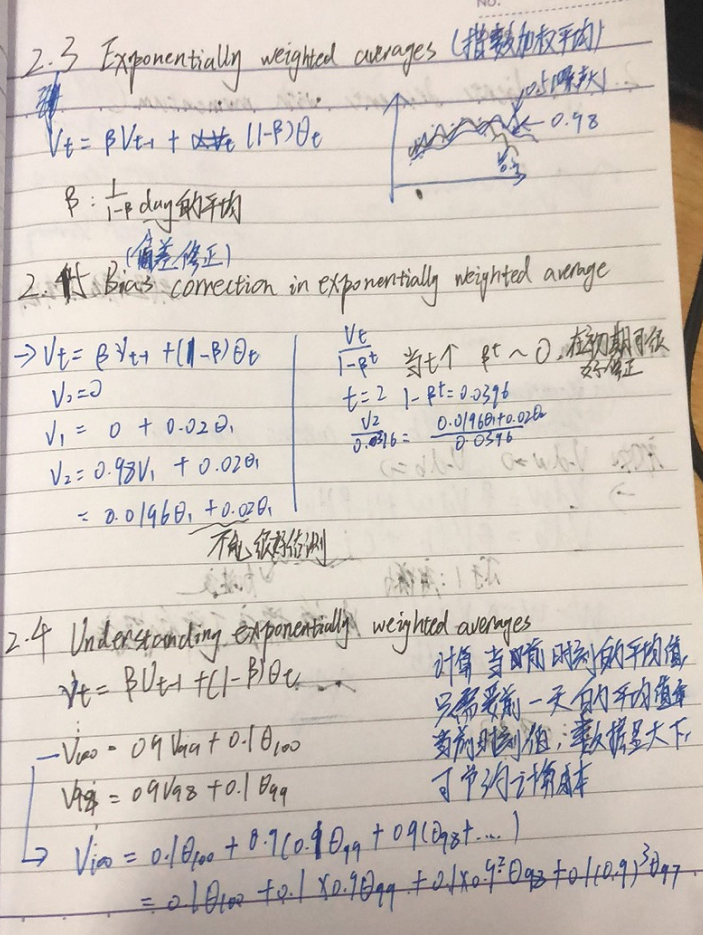 NO.
2.3 Exponentially weighted averages (指数加权平均)
Vt = βVt-1 + (1-β)θt
0.5(噪声大)
0.98
β : 1/(1-β) day 的平均
(偏差修正)
2.5 Bias correction in exponentially weighted average
→ Vt = βVt-1 + (1-β)θt
V0=0
V1 = 0 + 0.02θ1
V2 = 0.98V1 + 0.02θ1
= 0.0196θ1 + 0.02θ1
不能很好估测
Vt/(1-βt) 当t↑ βt ~ 0, 在初期可很
好修正
t=2 1-βt=0.0396
V2/0.0396 = (0.0196θ1+0.02θ2)/0.0396
2.4 Understanding exponentially weighted averages
Vt = βVt-1 + (1-β)θt
V100 = 0.9V99 + 0.1θ100
V99 = 0.9V98 + 0.1θ99
计算当前时刻的平均值,
只需要前一天的平均值和
当前时刻值, 数据量大下,
可节约计算成本
V100 = 0.1θ100 + 0.9(0.1θ99 + 0.9(θ98+....)
= 0.1θ100 + 0.1×0.9θ99 + 0.1×0.9²θ98 + 0.1(0.9)³θ97